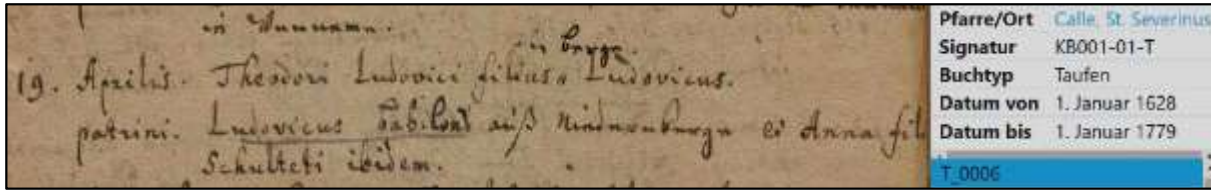 in
in berge.
19. Aprilis. Theodori Ludovici filius Ludovicus.
patrini. Ludovicus babilons auß Niedernberge et Anna fil
Schulteti ibidem.
Pfarre/Ort Calle, St. Severinus
Signatur KB001-01-T
Buchtyp Taufen
Datum von 1. Januar 1628
Datum bis 1. Januar 1779
T_0006